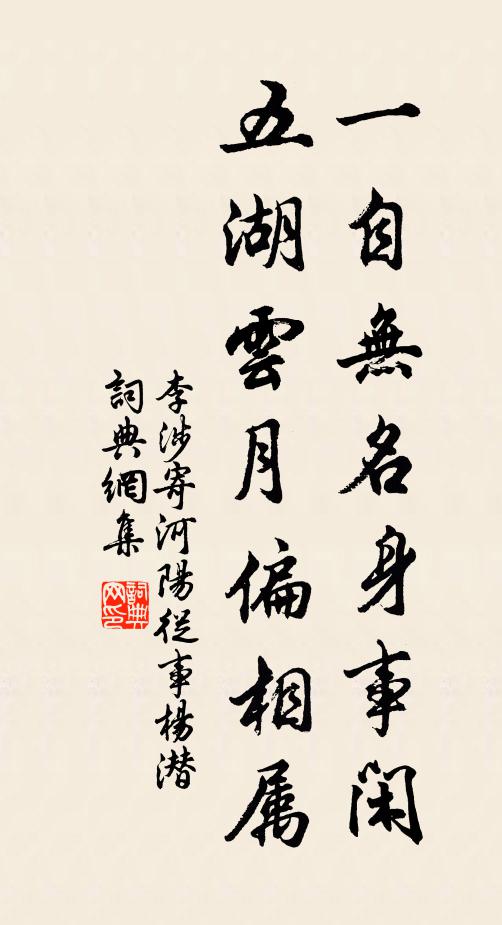 一自無名身事閑
五湖雲月偏相属
李涉寄河陽從事楊潜
詞典網集
詞典网印